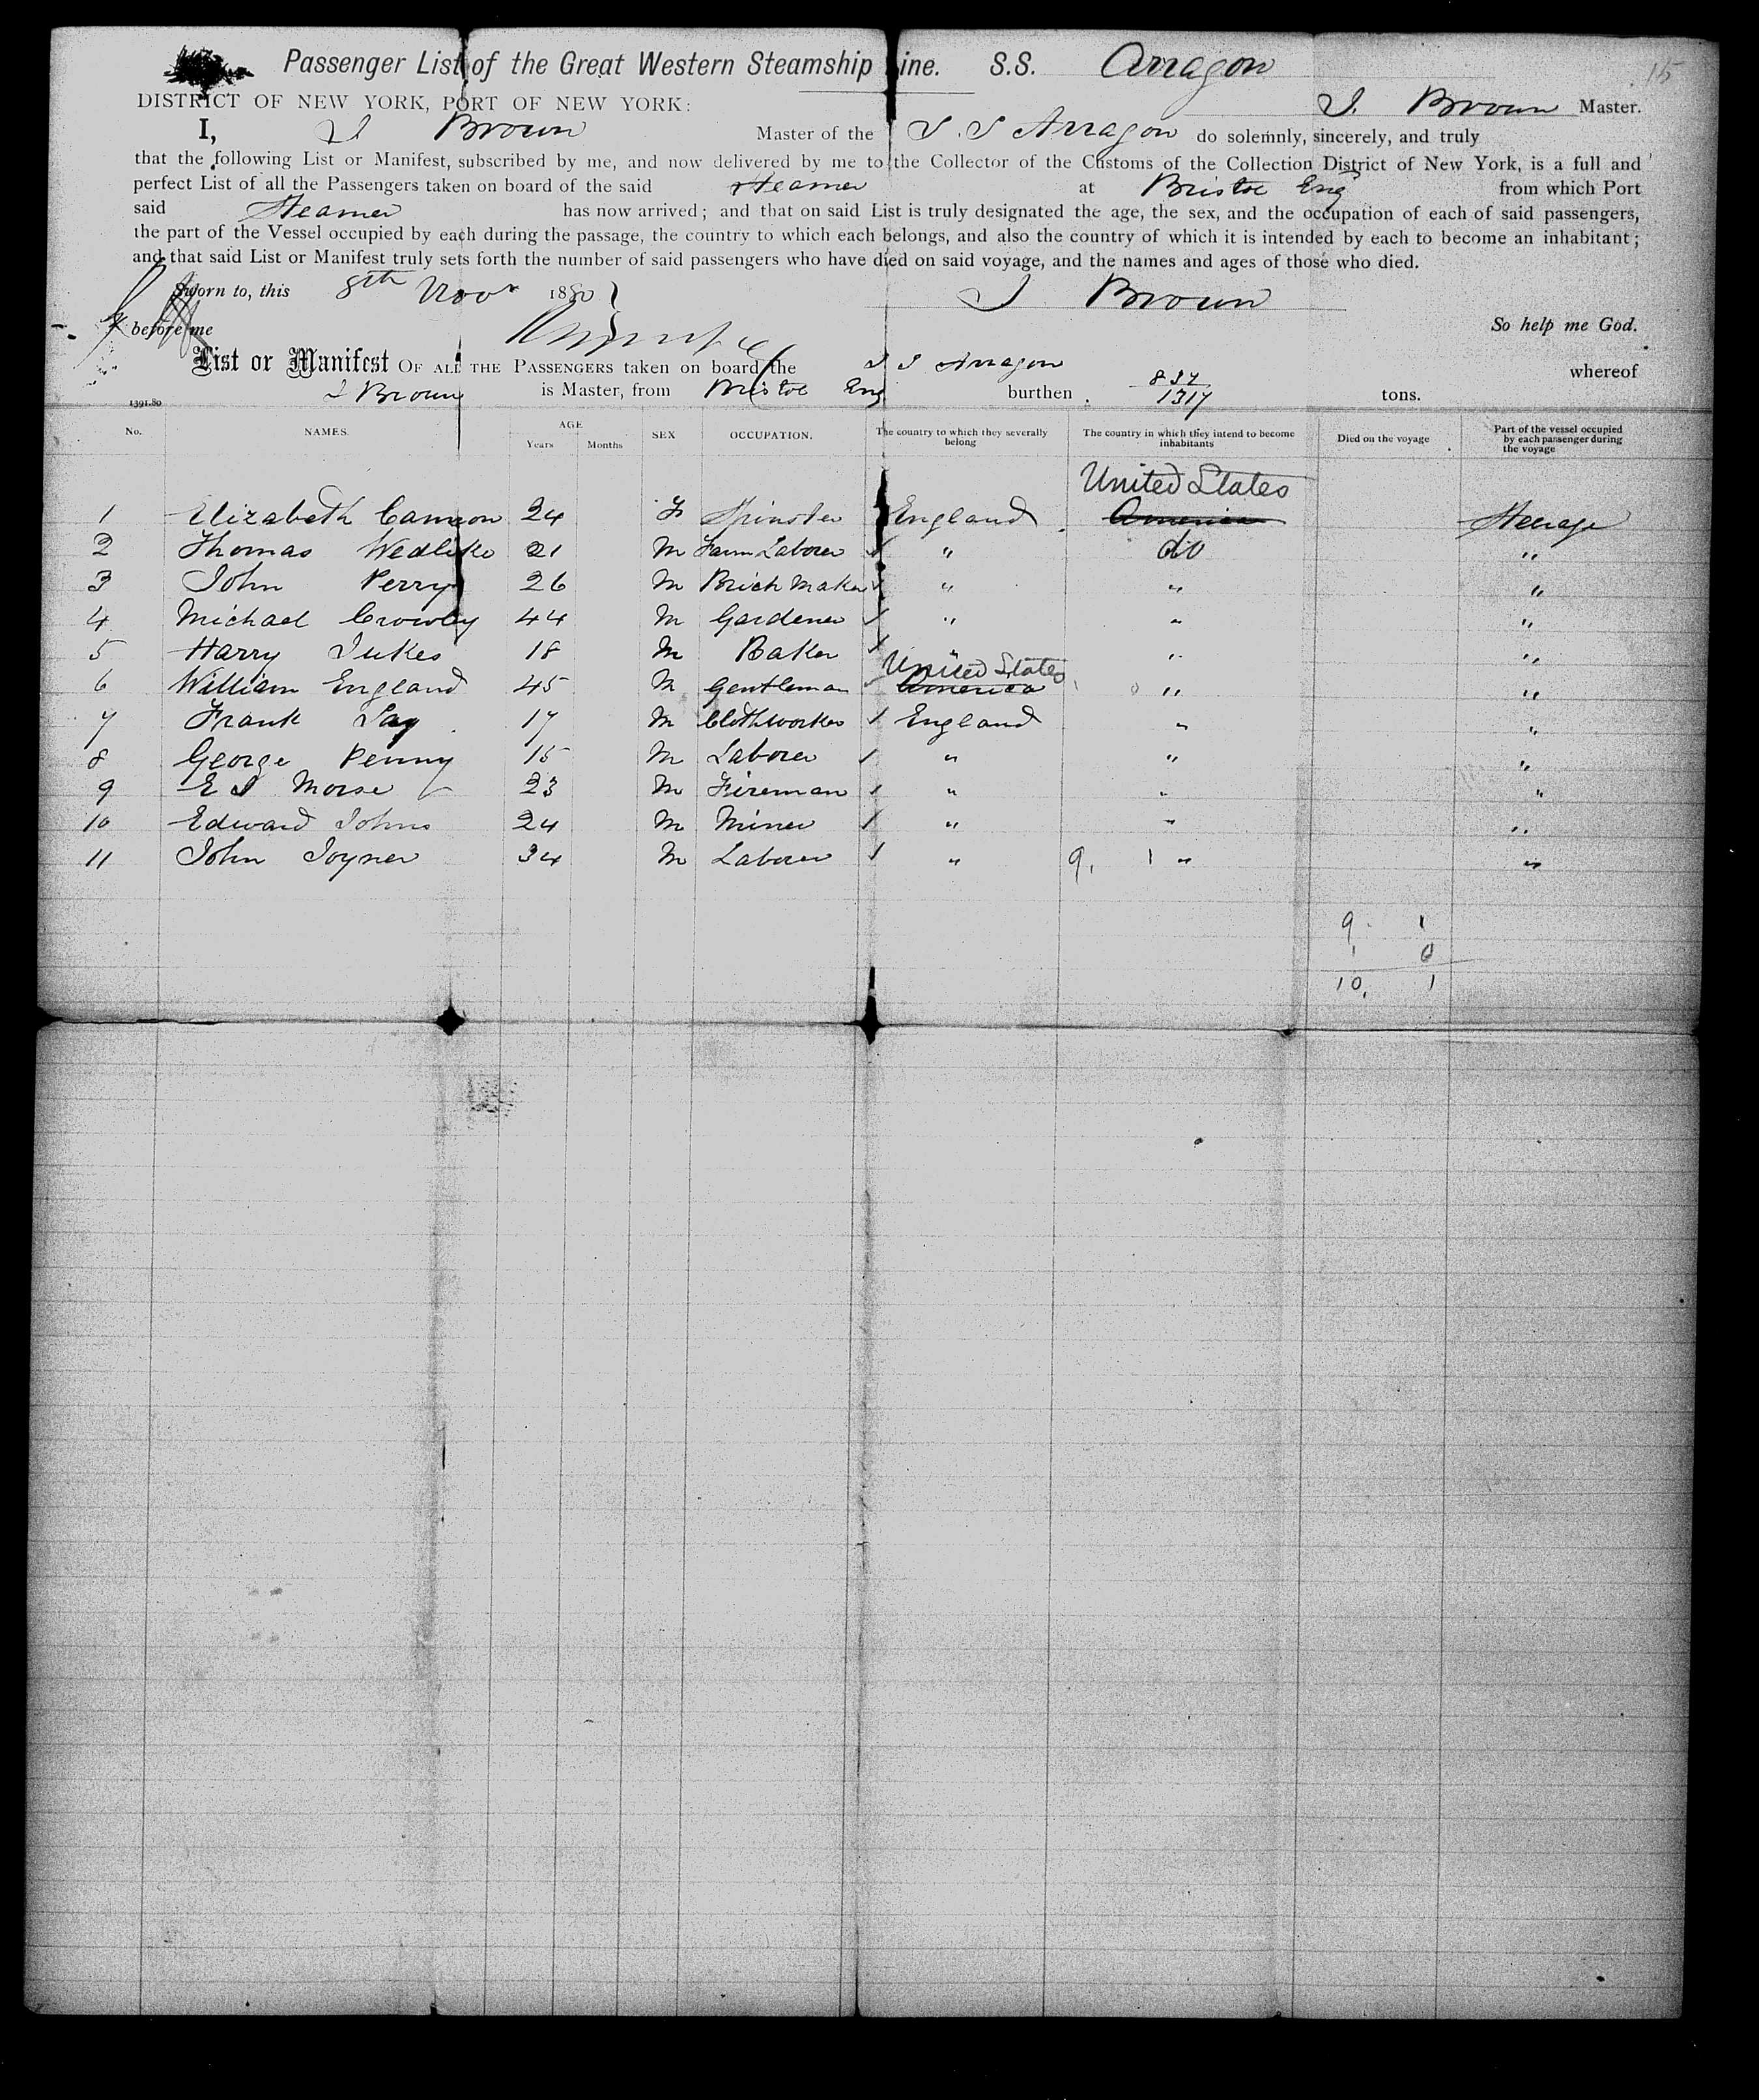 Passenger List of the Great Western Steamship Line. S.S. Arragon
15
DISTRICT OF NEW YORK, PORT OF NEW YORK: J. Brown Master.
I, J Brown Master of the S.S Arragon do solemnly, sincerely, and truly
that the following List or Manifest, subscribed by me, and now delivered by me to the Collector of the Customs of the Collection District of New York, is a full and
perfect List of all the Passengers taken on board of the said Steamer at Bristol Eng from which Port
said Steamer has now arrived; and that on said List is truly designated the age, the sex, and the occupation of each of said passengers,
the part of the Vessel occupied by each during the passage, the country to which each belongs, and also the country of which it is intended by each to become an inhabitant;
and that said List or Manifest truly sets forth the number of said passengers who have died on said voyage, and the names and ages of those who died.
Sworn to, this 8th Novr 1880 J Brown
before me So help me God.
List or Manifest OF ALL THE PASSENGERS taken on board the S S Arragon whereof
J Brown is Master, from Bristol Eng burthen 837 1317 tons.
1391.80
No. NAMES. AGE Years Months SEX OCCUPATION. The country to which they severally belong The country in which they intend to become inhabitants Died on the voyage Part of the vessel occupied by each passenger during the voyage
United States
1 Elizabeth Cannon 24 F Spinster England America Steerage
2 Thomas Wedlake 21 M Farm Laborer " do "
3 John Perry 26 M Brick Maker " " "
4 Michael Crowley 44 M Gardener " " "
5 Harry Jukes 18 M Baker " " "
United States
6 William England 45 M Gentleman America " "
7 Frank Say 17 M Clothworker England " "
8 George Penny 15 M Laborer " " "
9 E J Morse 23 M Fireman " " "
10 Edward Johns 24 M Miner " " "
11 John Joyner 34 M Laborer " 9, 1 " "
9 1
1 0
10, 1